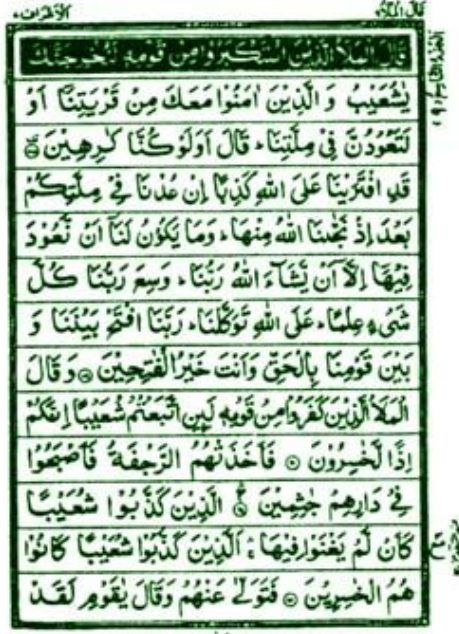 قال الملاء الاعراف
قَالَ الْمَلَاُ الَّذِيْنَ اسْتَكْبَرُوْا مِنْ قَوْمِهٖ لَنُخْرِجَنَّكَ
يٰشُعَيْبُ وَ الَّذِيْنَ اٰمَنُوْا مَعَكَ مِنْ قَرْيَتِنَاۤ اَوْ
لَتَعُوْدُنَّ فِيْ مِلَّتِنَاؕ قَالَ اَوَلَوْ كُنَّا كٰرِهِيْنَ ۟
قَدِ افْتَرَيْنَا عَلَى اللّٰهِ كَذِبًا اِنْ عُدْنَا فِيْ مِلَّتِكُمْ
بَعْدَ اِذْ نَجّٰىنَا اللّٰهُ مِنْهَاؕ وَمَا يَكُوْنُ لَنَاۤ اَنْ نَّعُوْدَ
فِيْهَاۤ اِلَّاۤ اَنْ يَّشَآءَ اللّٰهُ رَبُّنَاؕ وَسِعَ رَبُّنَا كُلَّ
شَيْءٍ عِلْمًاؕ عَلَى اللّٰهِ تَوَكَّلْنَاؕ رَبَّنَا افْتَحْ بَيْنَنَا وَ
بَيْنَ قَوْمِنَا بِالْحَقِّ وَاَنْتَ خَيْرُ الْفٰتِحِيْنَ ۟ وَقَالَ
الْمَلَاُ الَّذِيْنَ كَفَرُوْا مِنْ قَوْمِهٖ لَىِٕنِ اتَّبَعْتُمْ شُعَيْبًا اِنَّكُمْ
اِذًا لَّخٰسِرُوْنَ ۟ فَاَخَذَتْهُمُ الرَّجْفَةُ فَاَصْبَحُوْا
فِيْ دَارِهِمْ جٰثِمِيْنَ ۟ الَّذِيْنَ كَذَّبُوْا شُعَيْبًا
كَاَنْ لَّمْ يَغْنَوْا فِيْهَاۚ اَلَّذِيْنَ كَذَّبُوْا شُعَيْبًا كَانُوْا
هُمُ الْخٰسِرِيْنَ ۟ فَتَوَلّٰى عَنْهُمْ وَقَالَ يٰقَوْمِ لَقَدْ